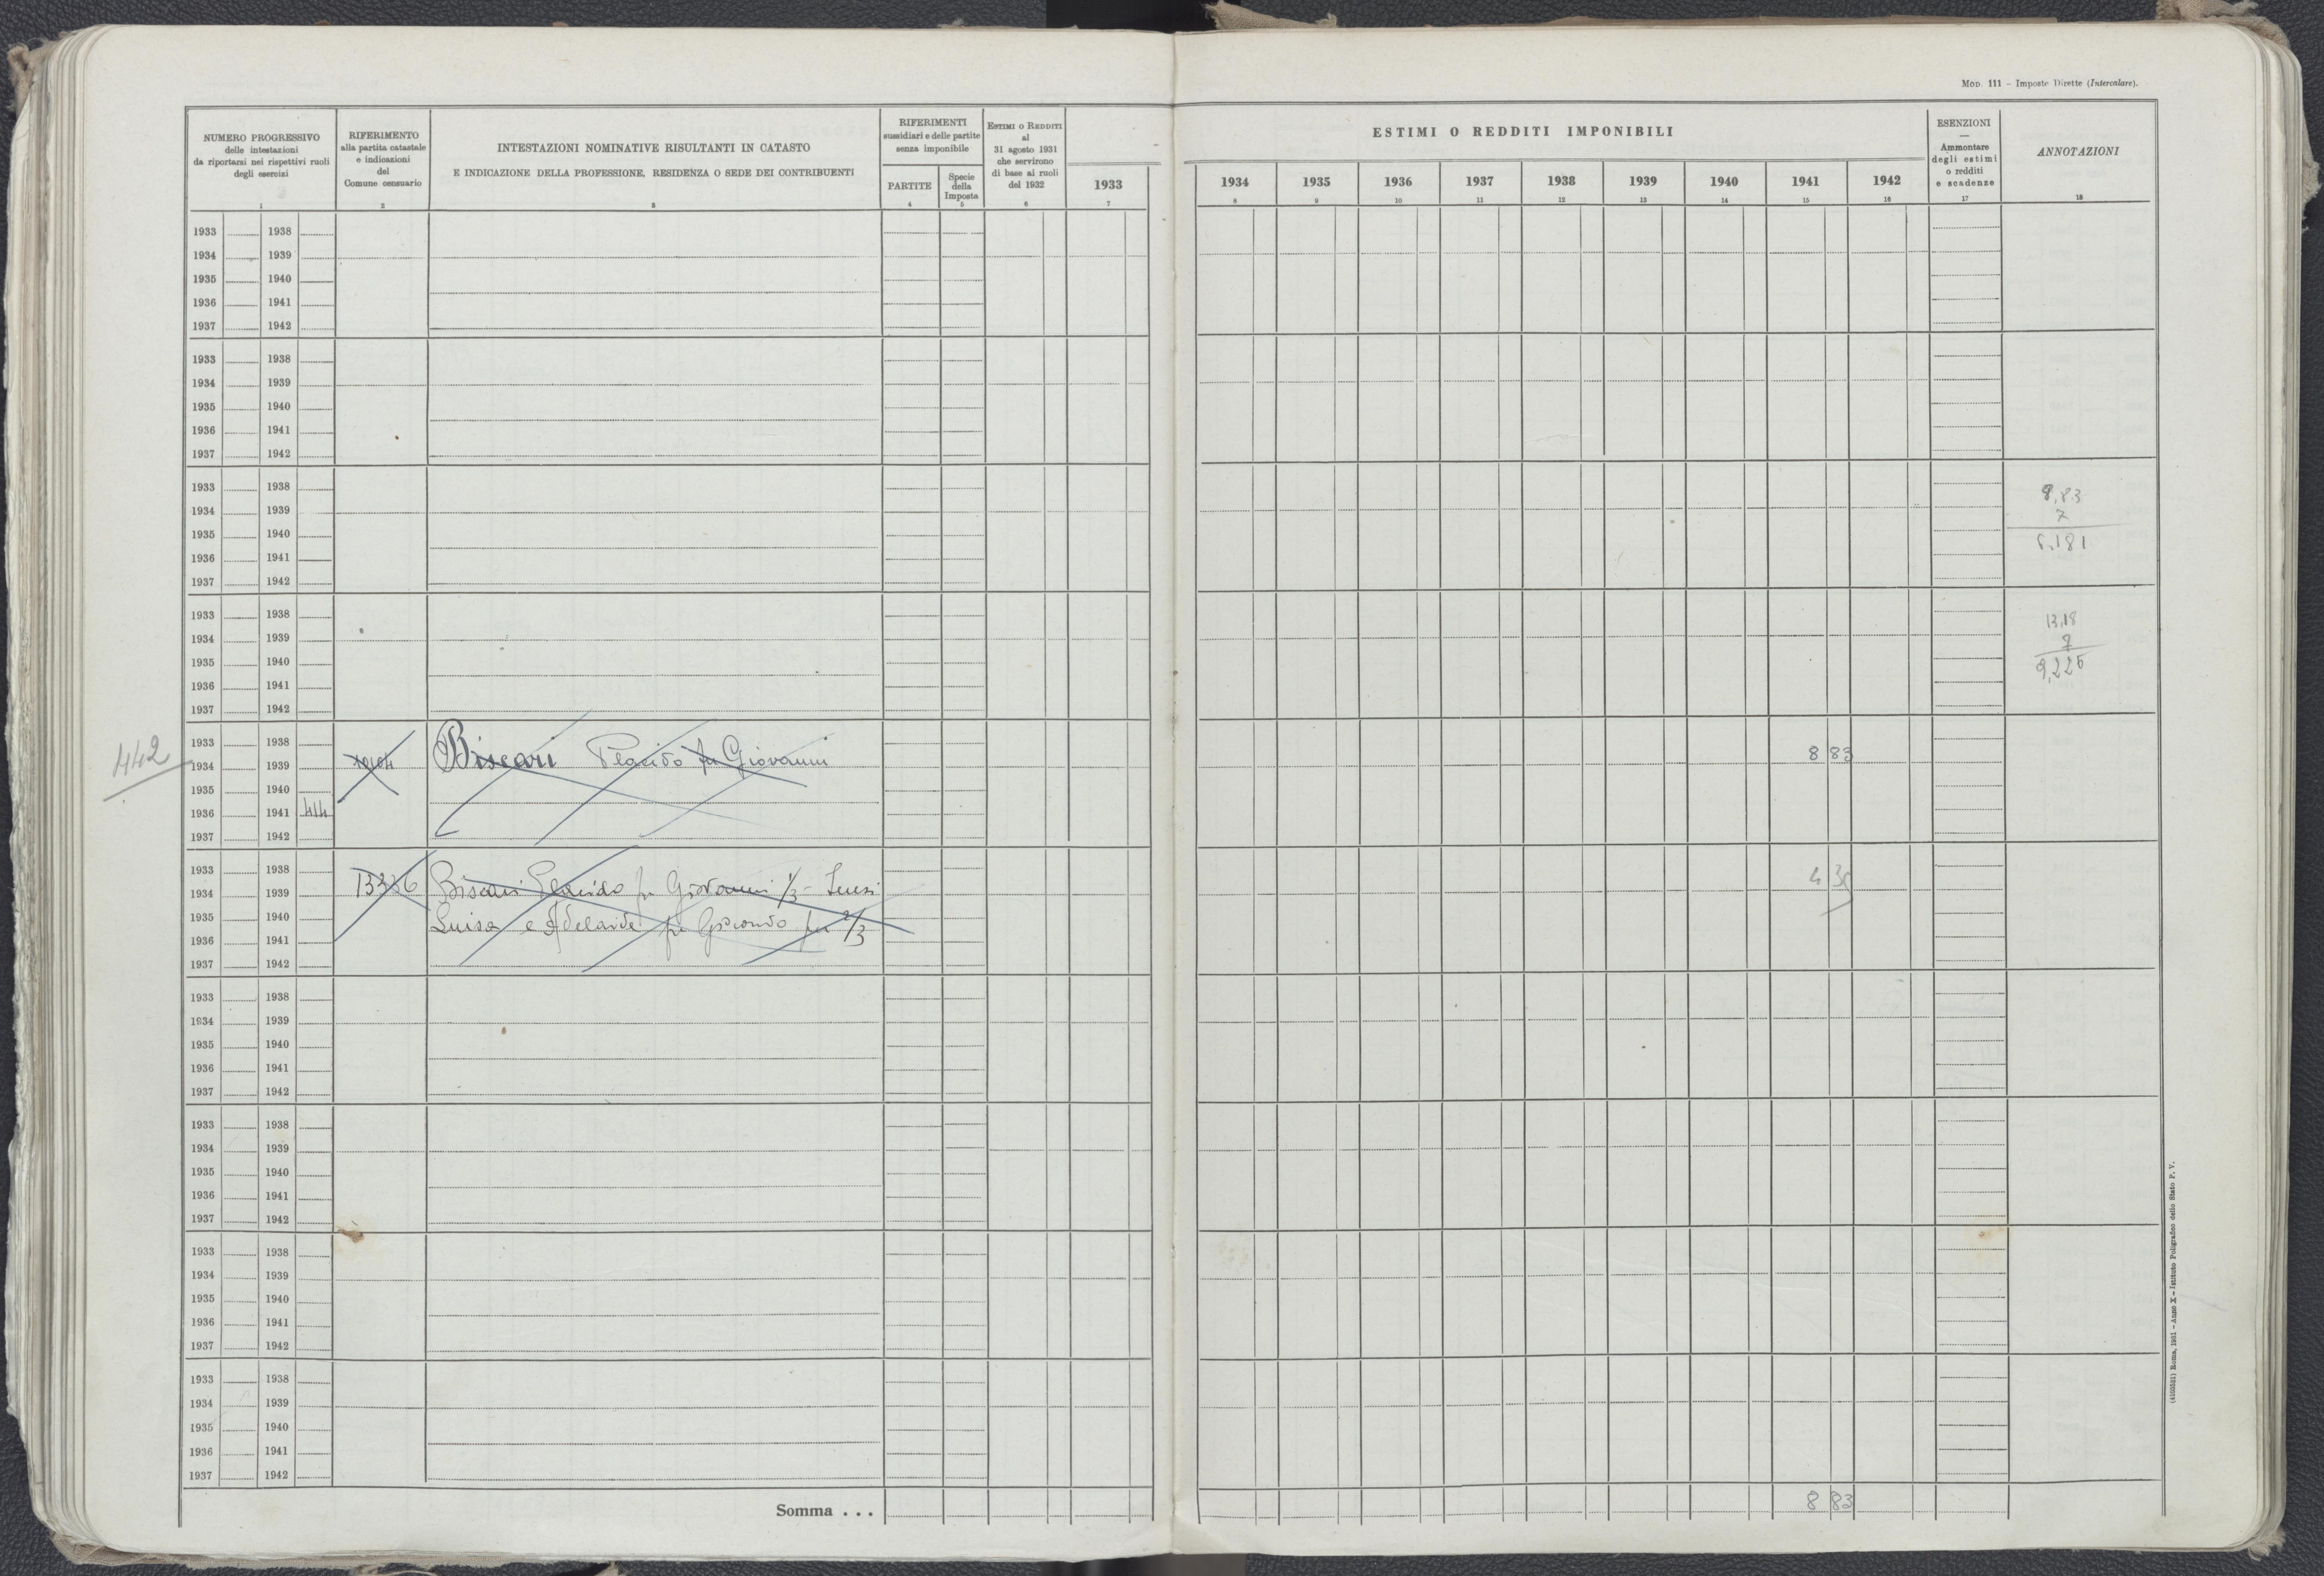 Mod. 111 – Imposte Dirette (Intercalare).
NUMERO PROGRESSIVO
delle intestazioni
da riportarsi nei rispettivi ruoli
degli esercizi
1
RIFERIMENTO
alla partita catastale
e indicazioni
del
Comune censuario
2
INTESTAZIONI NOMINATIVE RISULTANTI IN CATASTO
E INDICAZIONE DELLA PROFESSIONE, RESIDENZA O SEDE DEI CONTRIBUENTI
3
RIFERIMENTI
sussidiari e delle partite
senza imponibile
PARTITE
4
Specie
della
Imposta
5
Estimi o Redditi
al
31 agosto 1931
che servirono
di base ai ruoli
del 1932
6
1933
7
ESTIMI O REDDITI IMPONIBILI
1934 1935 1936 1937 1938 1939 1940 1941 1942
8 9 10 11 12 13 14 15 16
ESENZIONI
—
Ammontare
degli estimi
o redditi
e scadenze
17
ANNOTAZIONI
18
1933 1938
1934 1939
1935 1940
1936 1941
1937 1942
1933 1938
1934 1939
1935 1940
1936 1941
1937 1942
1933 1938
1934 1939
1935 1940
1936 1941
1937 1942
8,83
7
6,181
1933 1938
1934 1939
1935 1940
1936 1941
1937 1942
13,18
7
9,226
442
1933 1938
1934 1939 Biscari Placido fu Giovanni 8 83
1935 1940
1936 1941 414
1937 1942
1933 1938
1934 1939 13336 Biscari Placido fu Giovanni 1/3 - 4 35
1935 1940 Luisa e Adelaide fu Giocondo per 2/3
1936 1941
1937 1942
1933 1938
1934 1939
1935 1940
1936 1941
1937 1942
1933 1938
1934 1939
1935 1940
1936 1941
1937 1942
1933 1938
1934 1939
1935 1940
1936 1941
1937 1942
1933 1938
1934 1939
1935 1940
1936 1941
1937 1942
Somma . . . 8 83
Roma, 1931 – Anno X – Istituto Poligrafico dello Stato P. V.